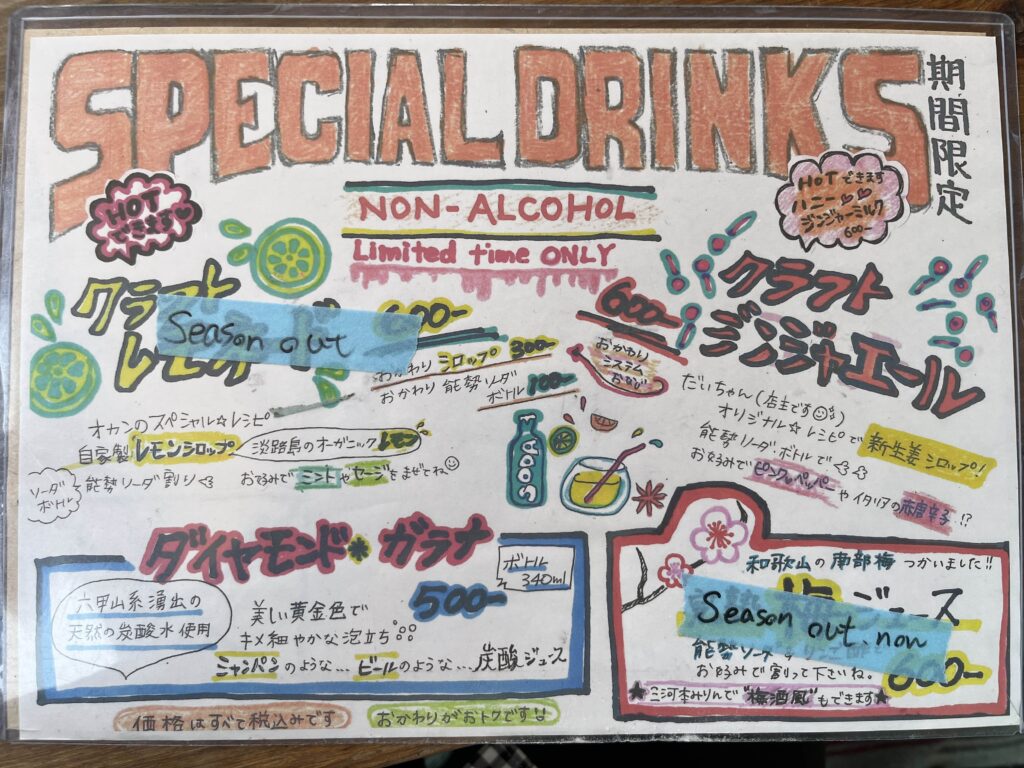 SPECIAL DRINKS
期間限定
HOT
できます♡
NON-ALCOHOL
Limited time ONLY
HOTできます
ハニー
ジンジャーミルク
600-
クラフト
Season out
レモ
600-
おかわり シロップ 300-
おかわり 能勢ソーダ
ボトル 100-
オカンのスペシャル☆レシピ
自家製 レモンシロップ 淡路島のオーガニックレモン
ソーダ
ボトル
能勢ソーダ割り
お好みで ミントやセージをまぜてね☺
600-
おかわり
システム
おなじ
クラフト
ジンジャエール
だいちゃん(店主です☺)
オリジナル☆レシピで
新生姜シロップ!
能勢ソーダ・ボトルで
お好みで ピンクペッパーや イタリアの赤唐辛子 !?
SODA
ダイヤモンド・ガラナ
ボトル
340ml
500-
六甲山系湧出の
天然の炭酸水使用
美しい黄金色で
キメ細やかな泡立ち
シャンパンのような... ビールのような... 炭酸ジュース
和歌山の南部梅 つかいました!!
ジュース
Season out now
600-
お好みで割って下さいね。
★三河本みりんで"梅酒風"もできます★
価格はすべて税込みです
おかわりがおトクです!!